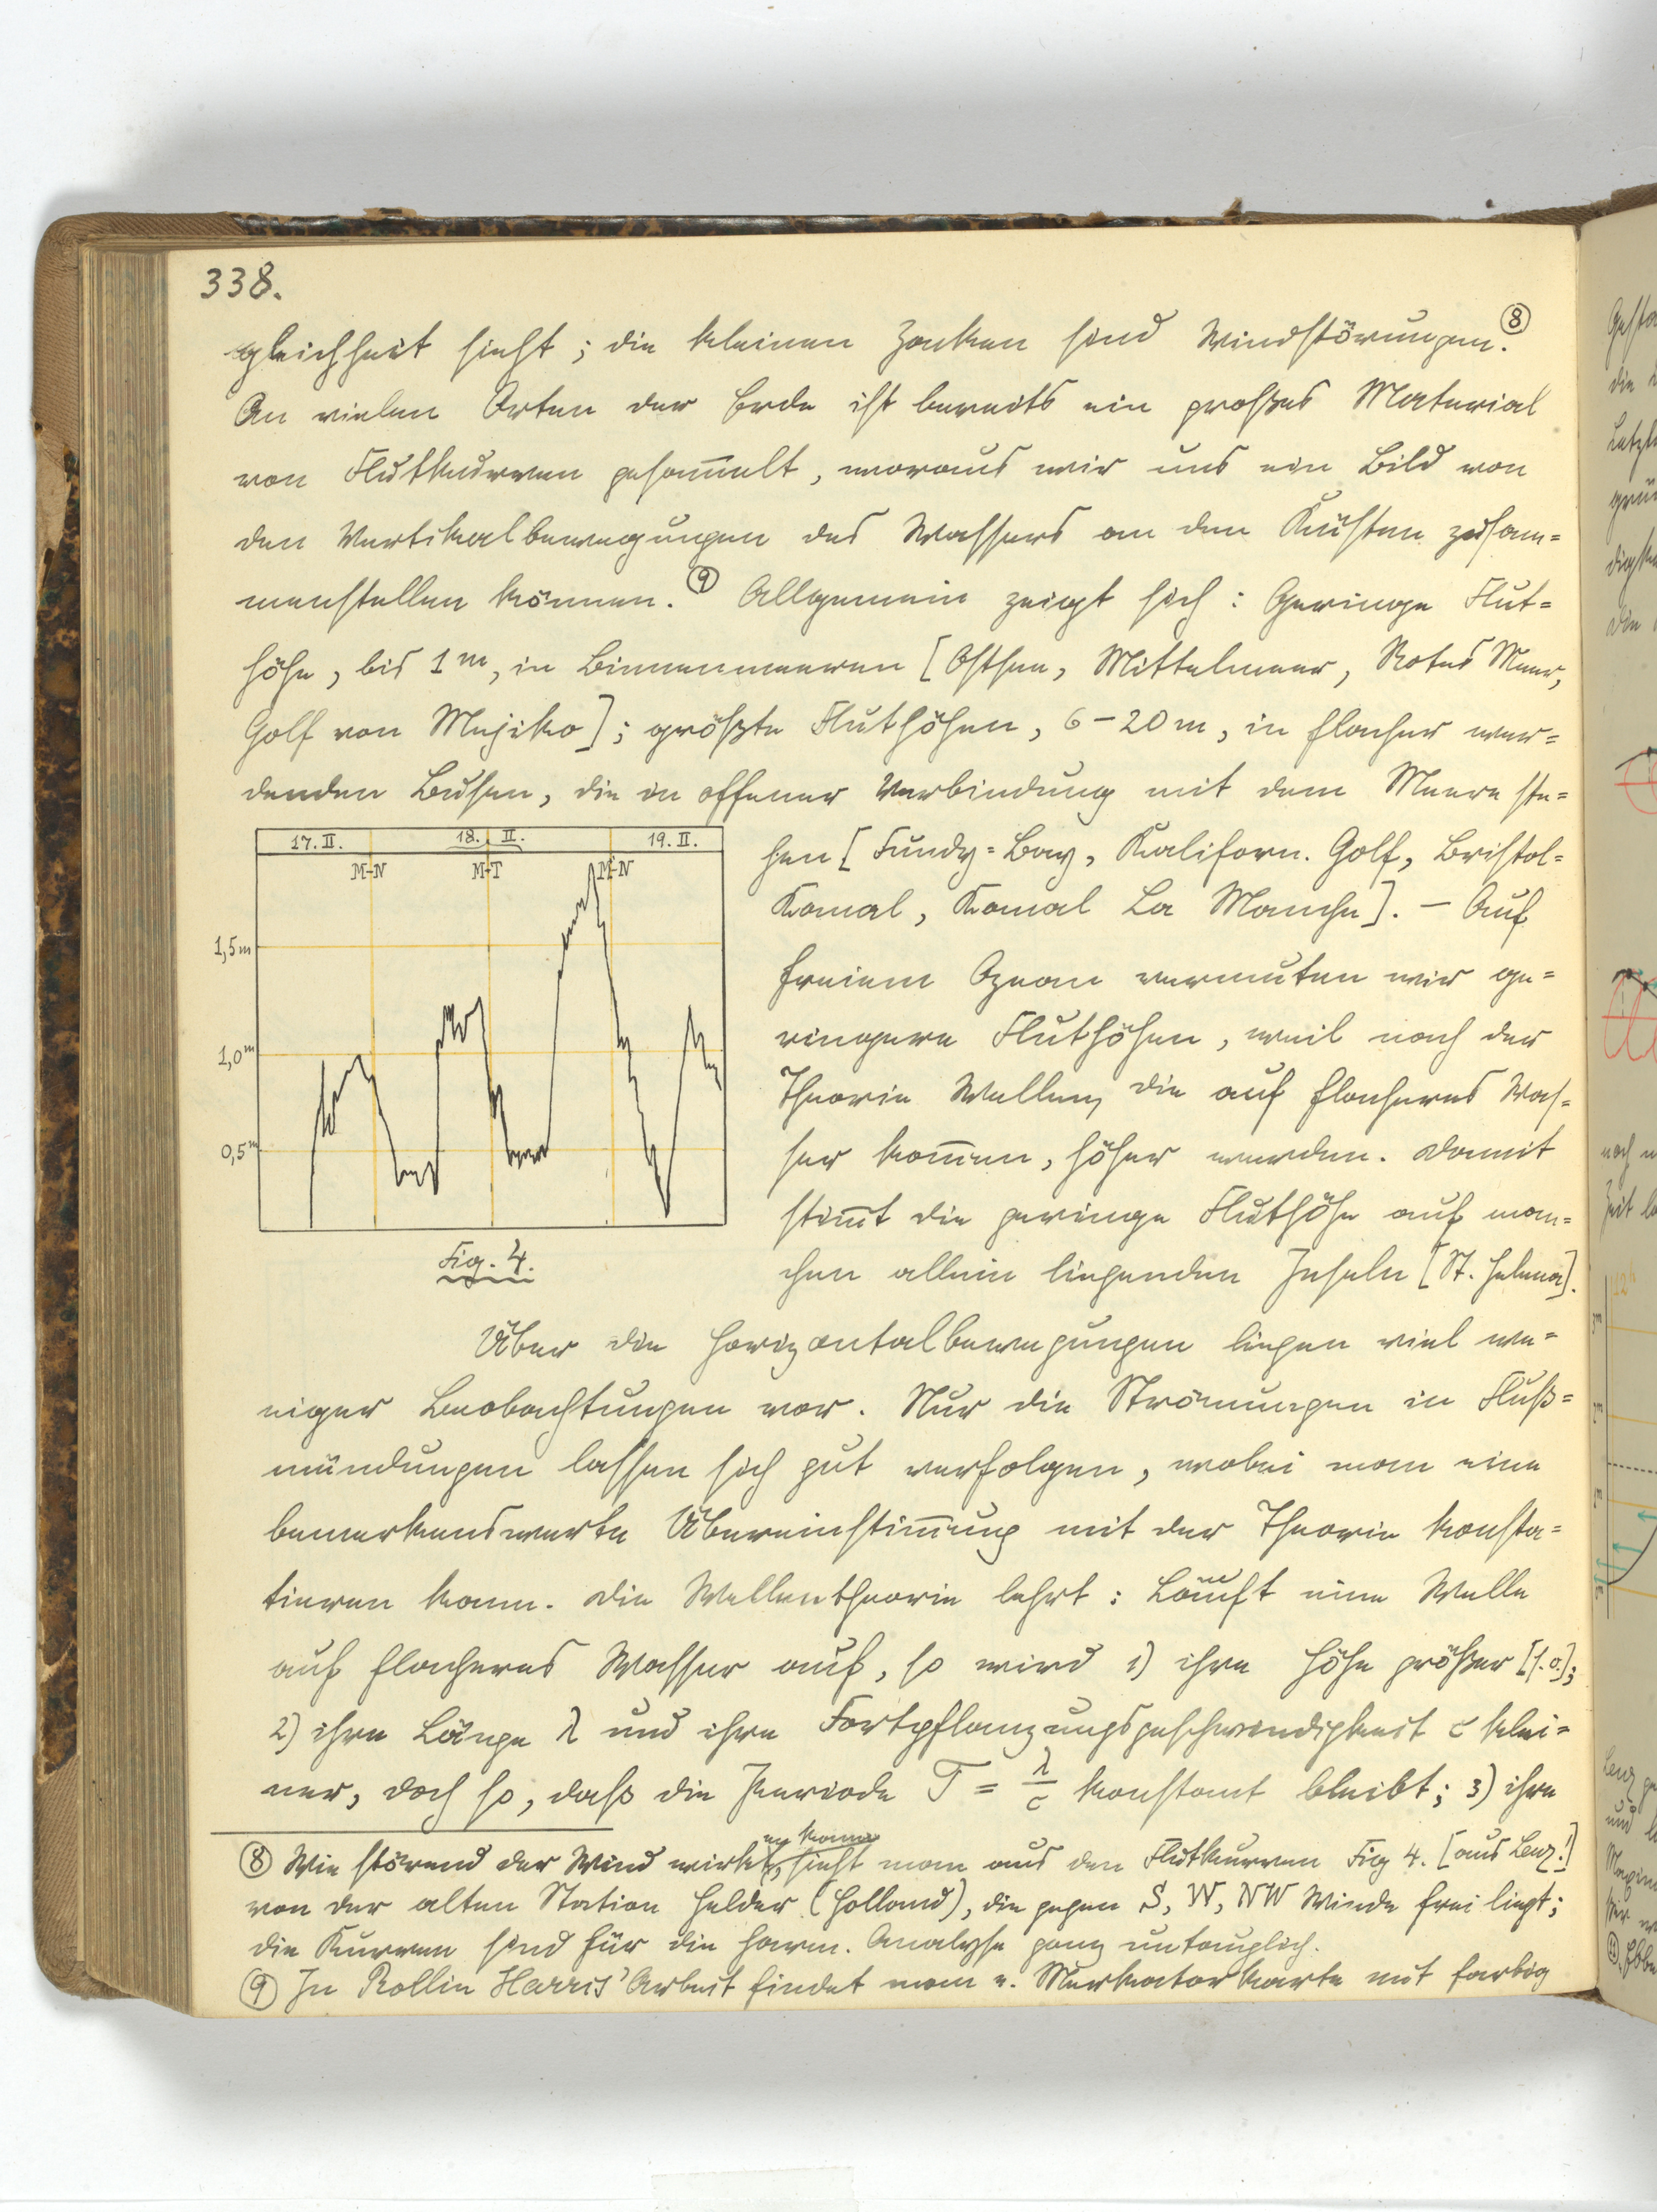 338.
gleichheit sieht; die kleinen Zacken sind Windstörungen. ⑧
An vielen Orten der Erde ist bereits ein großes Material
von Flutkurven gesam̅elt, woraus wir uns ein Bild von
den Vertikalbewegungen des Wassers an den Küsten zusam=
menstellen können. ⑨ Allgemein zeigt sich: Geringe Flut=
höhe, bis 1 m, in Binnenmeeren [Ostsee, Mittelmeer, Rotes Meer,
Golf von Mejiko]; größte Fluthöhen, 6–20 m, in flacher wer=
denden Busen, die in offener Verbindung mit dem Meere ste=
hen [Fundy=Bay, Kaliforn. Golf, Bristol=
Kanal, Kanal La Manche]. – Auf
freiem Ozean vermuten wir ge=
ringere Fluthöhen, weil nach der
Theorie Wellen, die auf flacheres Was=
ser kom̅en, höher werden. Damit
stim̅t die geringe Fluthöhe auf man=
chen allein liegenden Inseln [St. Helena].
17. II. 18. II. 19. II.
M-N M-T M-N
1,5 m
1,0 m
0,5 m
Fig. 4.
Über die Horizontalbewegungen liegen viel we=
niger Beobachtungen vor. Nur die Strömungen in Fluß=
mündungen lassen sich gut verfolgen, wobei man eine
bemerkenswerte Übereinstim̅ung mit der Theorie konsta=
tieren kann. Die Wellentheorie lehrt: Läuft eine Welle
auf flacheres Wasser auf, so wird 1) ihre Höhe größer [s. o.];
2) ihre Länge λ und ihre Fortpflanzungsgeschwindigkeit c klei=
ner, doch so, daß die Periode T = λ/c konstant bleibt; 3) ihre
⑧ Wie störend der Wind wirken kann, sieht man aus den Flutkurven Fig 4. [aus Lenz!]
von der alten Station Helder (Holland), die gegen S, W, NW Winde frei liegt;
die Kurven sind für die harm. Analyse ganz untauglich.
⑨ In Rollin Harris' Arbeit findet man e. Merkatorkarte mit farbig